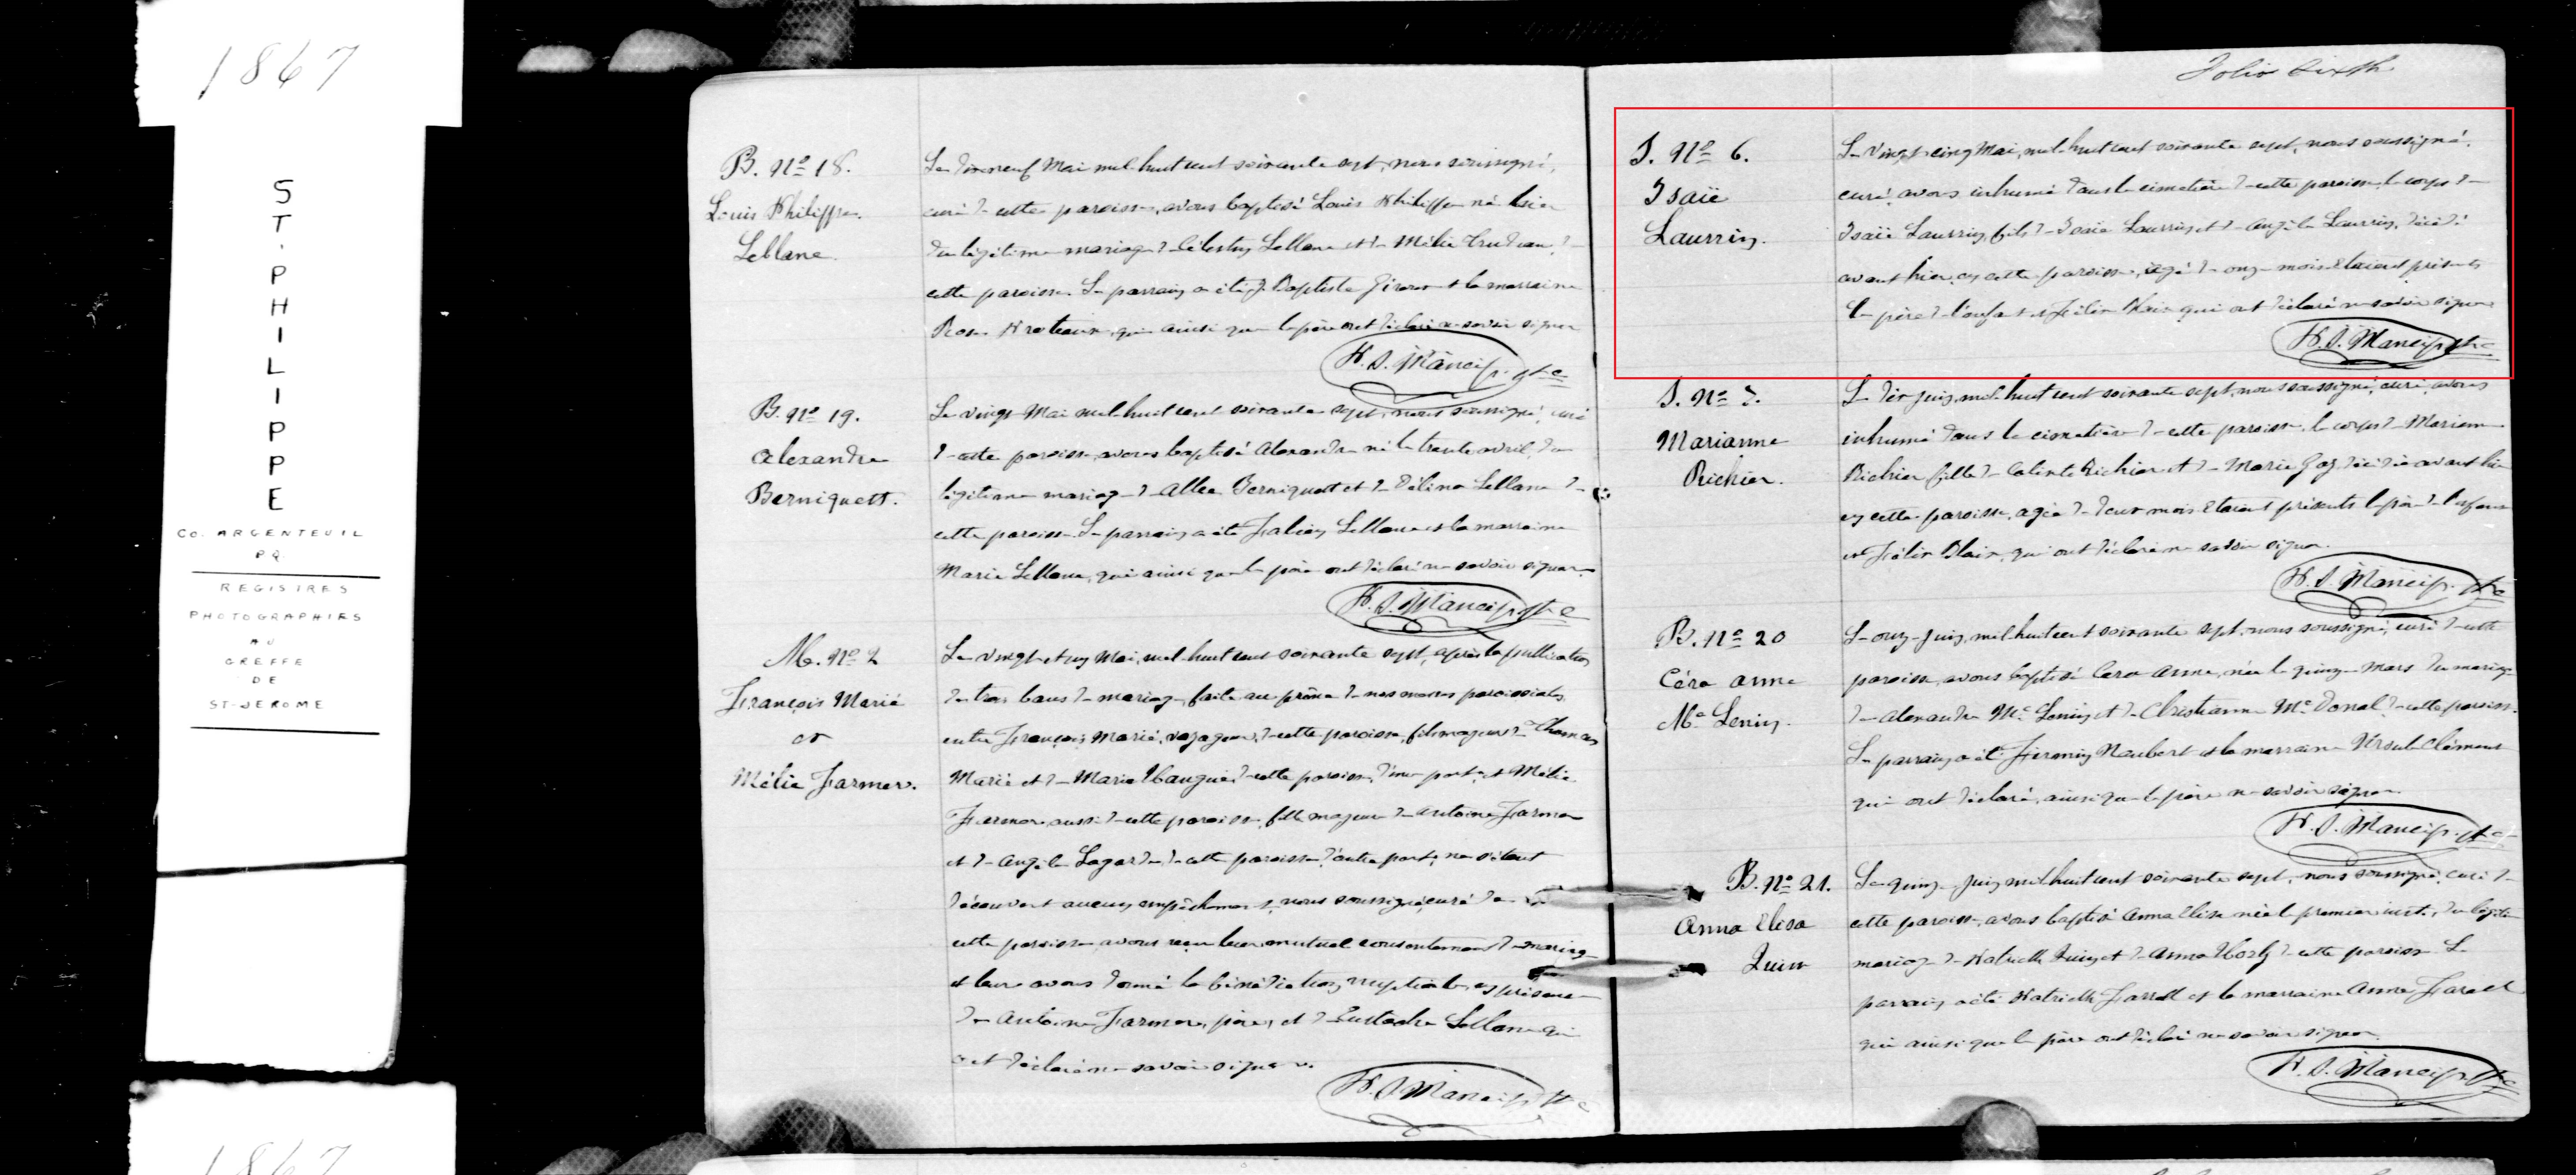 1867
ST. PHILIPPE
CO. ARGENTEUIL
P.Q.
REGISTRES
PHOTOGRAPHIES
AU
GREFFE
DE
ST-JEROME
1867
B. No 18.
Louis Philippe
Leblanc
Le dixneuf Mai mil huit cent soixante sept, nous soussigné,
curé de cette paroisse, avons baptisé Louis Philippe né hier
du légitime mariage de Célestin Leblanc et de Mélie Trudeau de
cette paroisse. Le parrain a été J. Baptiste Girard et la marraine
Rose Proteau, qui ainsi que le père ont déclaré ne savoir signer
P. S. Mancip. Ptre
B. No 19.
Alexandre
Berniquett.
Le vingt Mai mil huit cent soixante sept, nous soussigné, curé
de cette paroisse, avons baptisé Alexandre né le trente avril, du
légitime mariage de Berniquett et de Délina Leblanc de
cette paroisse. Le parrain a été Fabien Leblanc et la marraine
Marie Leblanc, qui ainsi que le père ont déclaré ne savoir signer.
P. S. Mancip. Ptre
M. No 2
François Marié
et
Mélie Farmer.
Le vingt et un Mai, mil huit cent soixante sept, après la publication
de trois bans de mariage, faite au prône de nos messes paroissiales
entre François Marié, voyageur, de cette paroisse, fils majeur de Thomas
Marié et de Marie de cette paroisse, d'une part, et Mélie
Farmer aussi de cette paroisse, fille majeure de Antoine Farmer
et de Angèle Lagarde de cette paroisse d'autre part; ne s'étant
découvert aucun empêchement, nous soussigné, curé de
cette paroisse avons reçu leur mutuel consentement de mariage
et leur avons donné la bénédiction nuptiale en présence
de Antoine Farmer, père, et de Eustache Leblanc qui
ont déclaré ne savoir signer.
P. S. Mancip. Ptre
Folio Sixth
S. No 6.
Isaïe
Laurrin.
Le vingt cinq Mai, mil huit cent soixante sept, nous soussigné,
curé, avons inhumé dans le cimetière de cette paroisse, le corps de
Isaïe Laurrin, fils de Isaïe Laurrin et de Angèle Laurrin, décédé
avant hier, en cette paroisse, âgé de onze mois. Etaient présents
le père de l'enfant et Félix Blair qui ont déclaré ne savoir signer
P. S. Mancip. Ptre
S. No 7.
Marianne
Richier.
Le 1er Juin, mil huit cent soixante sept, nous soussigné, curé, avons
inhumé dans le cimetière de cette paroisse, le corps de Marianne
Richier fille de Richier et de Marie décédée avant hier
en cette paroisse, agée de deux mois. Etaient présents le père de l'enfant
et Félix Blair, qui ont déclaré ne savoir signer.
P. S. Mancip. Ptre
B. No 20
Céra Anne
Mc Lenin.
Le onze Juin, mil huit cent soixante sept, nous soussigné, curé de cette
paroisse, avons baptisé Cera Anne, née le quinze Mars du mariage
de Alexandre Mc Lenin et de Christianne Mc Donal de cette paroisse.
Le parrain a été Firmin Naubert et la marraine Ursule Clément
qui ont déclaré, ainsi que le père ne savoir signer.
P. S. Mancip. Ptre
B. No 21.
Anna Elisa
Quinn
Le quinze Juin mil huit cent soixante sept, nous soussigné, curé de
cette paroisse, avons baptisé Anna Elisa née le premier inst. du légitime
mariage de Patrick Quinn et de Anna de cette paroisse. Le
parrain a été Patrick Farrell et la marraine Anne Farrell
qui ainsi que le père ont déclaré ne savoir signer.
P. S. Mancip. Ptre